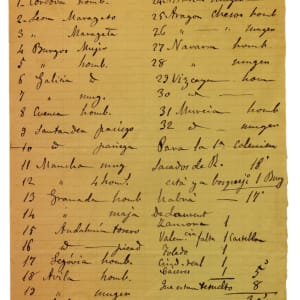 1. Cordova homb.
2. Leon Maragato
3 " Maragata
4 Burgos Mujer
5 " homb.
6 Galicia d
7 " mug.
8 Cuenca homb
9 Santander pasiego
10 d pasiega
11 Mancha mug
12 " 4 homb.
13 Granada homb
14 " maja
15 Andalucia torero
16 d picad
17 Segovia homb.
18 Avila homb.
19 " mugen
25 Aragon Chesos homb
26 " " mugen
27 Navarra homb
28 " mugen
29 Vizcaya hom
30 " "
31 Murcia homb
32 d mugen
Para la
Sacados de R. 18
1 Burg
Habrá 17
De Laurent
Zamora 1
Valen falta 1 Castellon
Toledo 1
Ciud. real 1
Caceres 1 5
resuelto 8